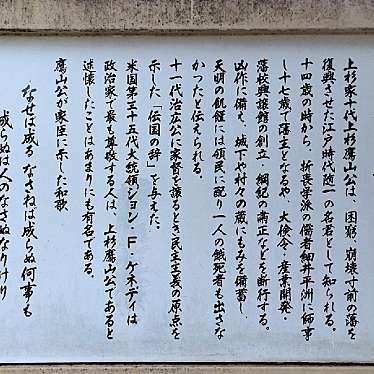 上杉家十代上杉鷹山公は、困窮、崩壊寸前の藩を
復興させた江戸時代随一の名君として知られる。
十四歳の時から、折衷学派の儒者細井平洲に師事
し十七歳で藩主となるや、大倹令・産業開発・
藩校興譲館の創立、綱紀の粛正などを断行する。
凶作に備え、城下や村々の蔵にもみを備蓄し、
天明の飢饉には領民に配り一人の餓死者も出さな
かったと伝えられる。
十一代治広公に家督を譲るとき民主主義の原点を
示した「伝国の辞」を与えた。
米国第三十五代大統領ジョン・F・ケネディは
政治家で最も尊敬する人は、上杉鷹山公であると
述懐したことはあまりにも有名である。
鷹山公が家臣に示した和歌
なせば成る なさねば成らぬ 何事も
成らぬは人の なさぬなりけり